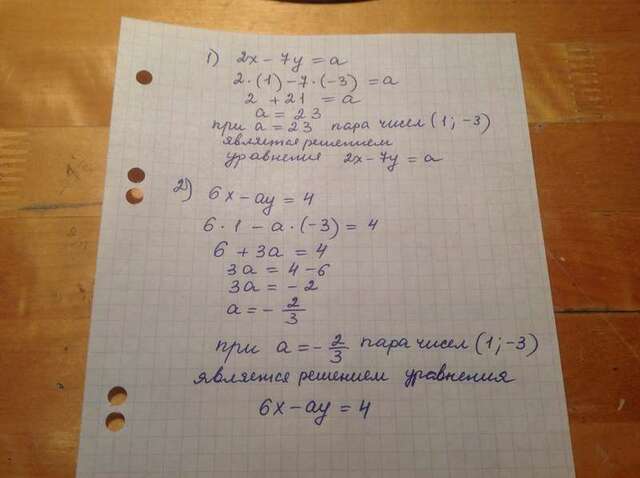 1) 2x - 7y = a
2·(1) - 7·(-3) = a
2 + 21 = a
a = 23
при a = 23 пара чисел (1; -3)
является решением
уравнения 2x - 7y = a
2) 6x - ay = 4
6·1 - a·(-3) = 4
6 + 3a = 4
3a = 4 - 6
3a = - 2
a = - 2/3
при a = - 2/3 пара чисел (1; -3)
является решением уравнения
6x - ay = 4